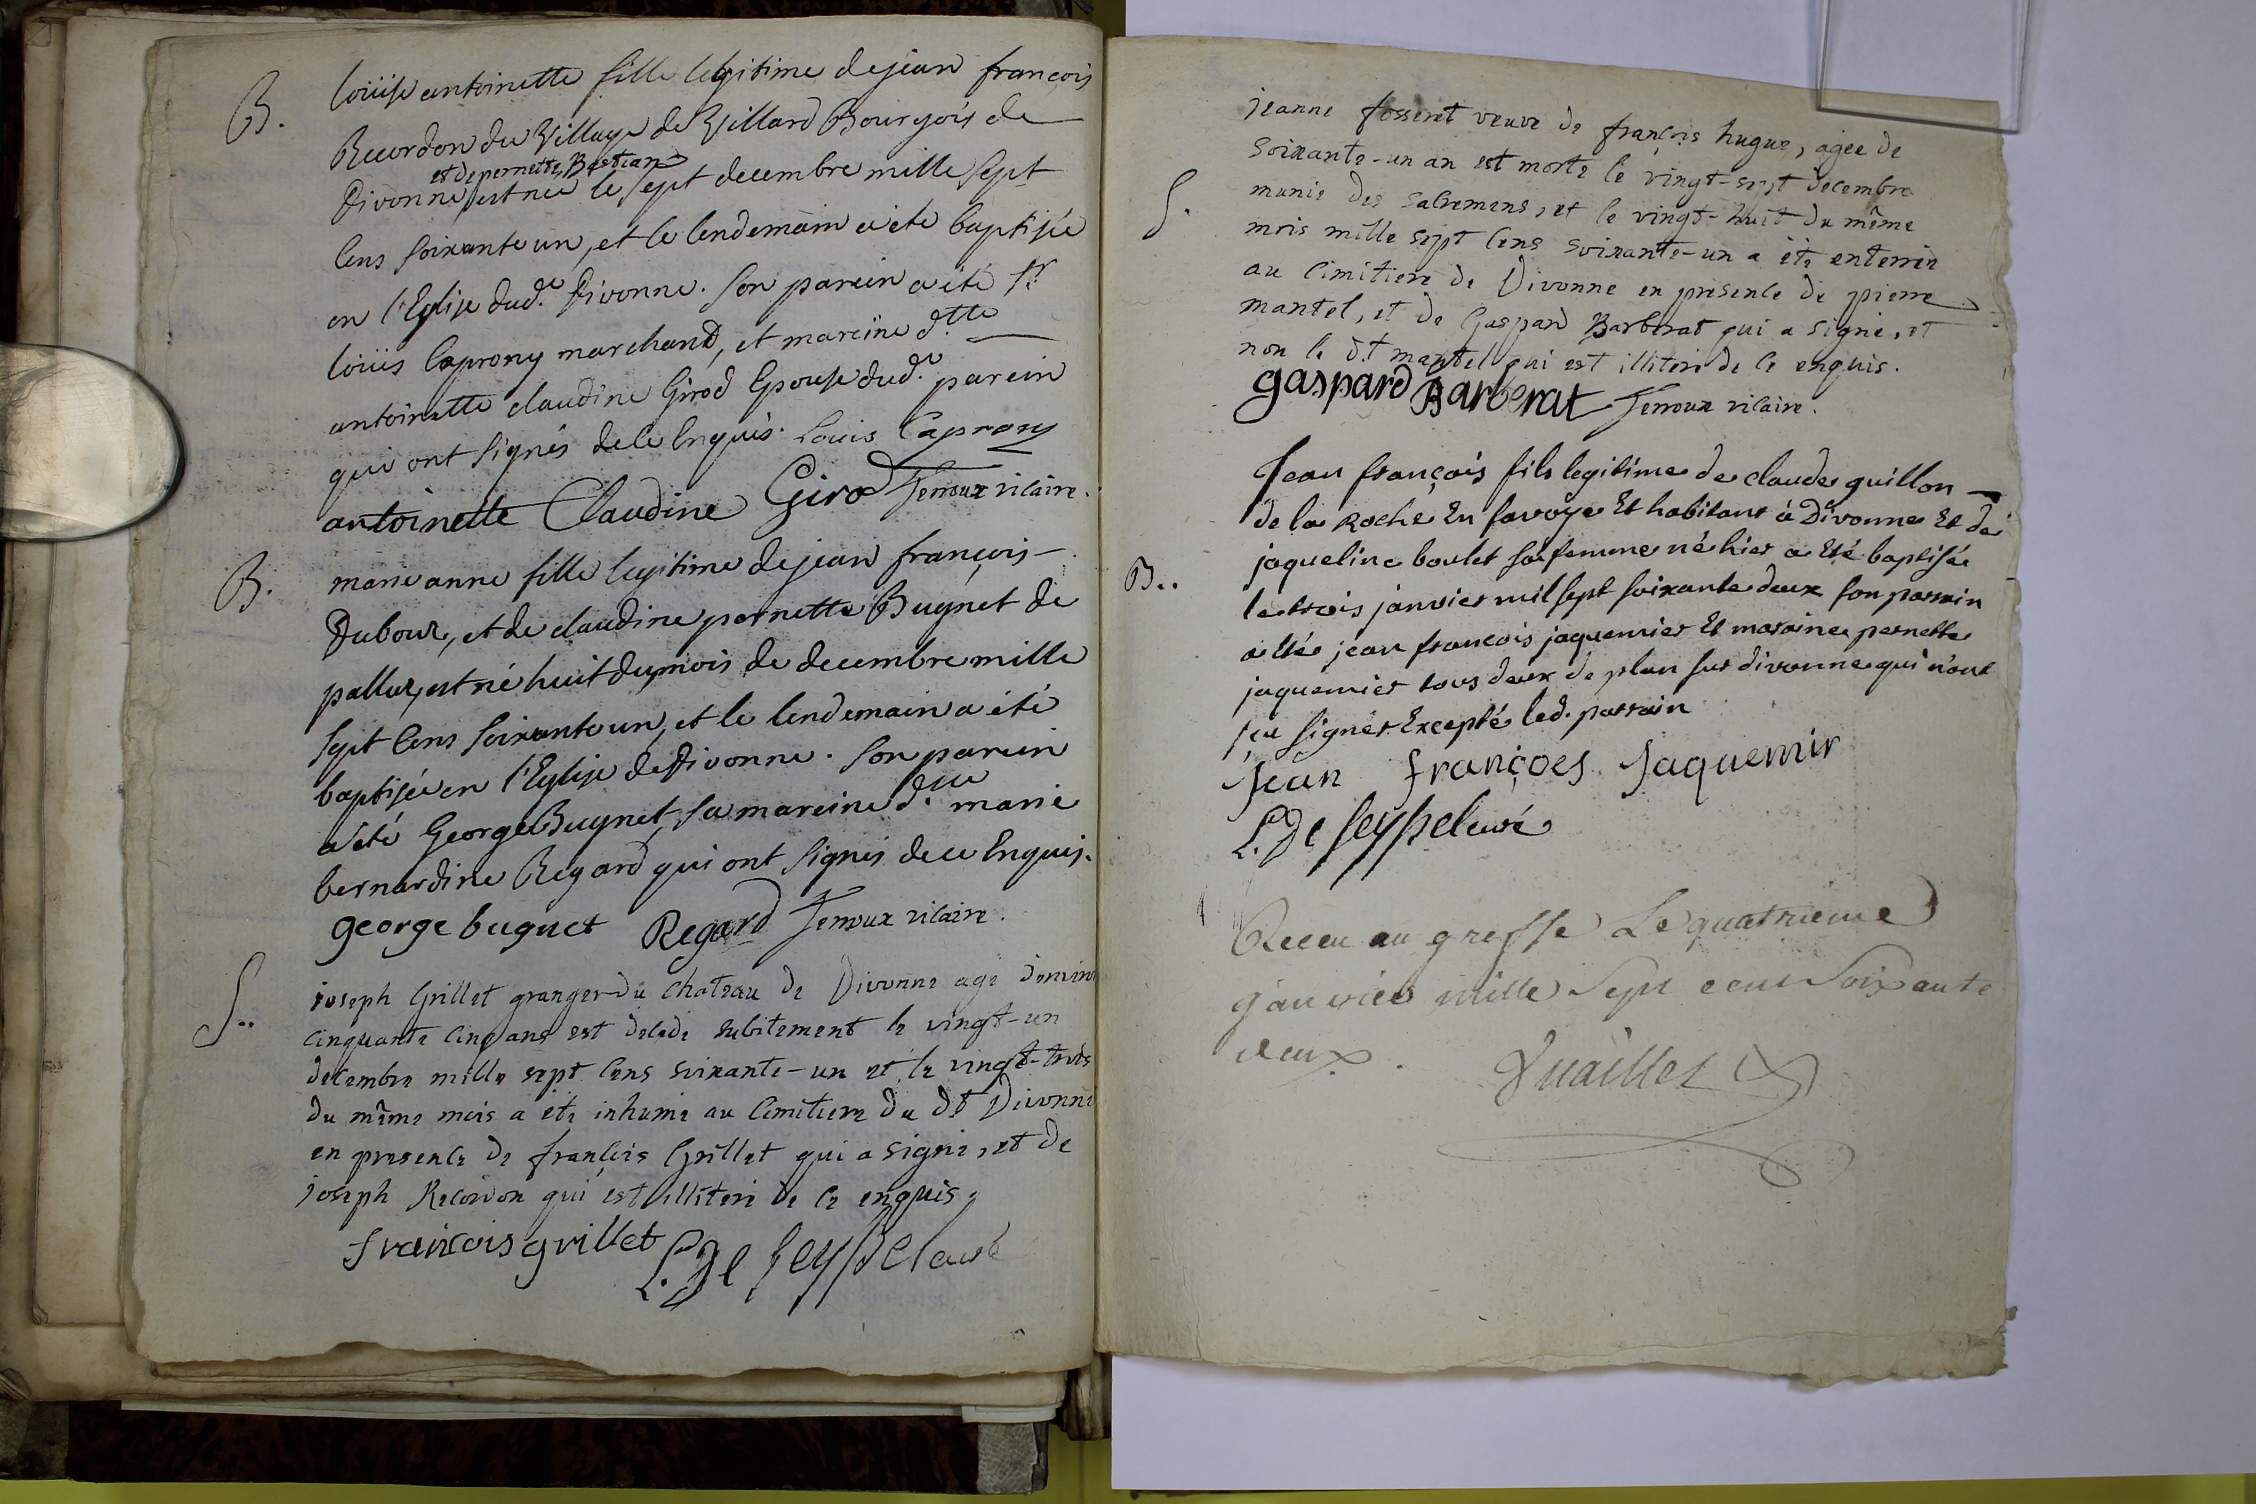 B. loüise antoinette fille legitime de jean françois
Recordon du Village de Villard Bourgois de
et de pernette Bastian
Divonne, est née le sept decembre mille sept
cens soixante un, et le lendemain a été baptisée
en l'Eglise dud.e Divonne. Son parein a été sr.
loüis Caprony marchand, et mareine d.tte
antoinette claudine Girod Epouse dud.e parein
qui ont signés de ce Enquis. Louis Caprony
antoinette Claudine Girod Terroux vicaire.
B. marie anne fille legitime de jean françois
Dubour, et de claudine pernette Bugnet de
est né huit du mois de decembre mille
sept cens soixante un, et le lendemain a été
baptisée en l'Eglise de Divonne. Son parein
a été George Bugnet, sa mareine d.lle marie
bernardine Regard qui ont signés de ce Enquis.
george bugnet Regard Terroux vicaire.
S.. joseph Grillet granger du chateau de Divonne agé d'environ
cinquante cinq ans est decedé subitement le vingt-un
decembre mille sept cens soixante-un et le vingt-trois
du même mois a été inhumé au cimitiere du dt Divonne
en presence de françois Grillet qui a signé, et de
joseph Recordon qui est illiteré de ce enquis.
francois grillet L. De seyssel curé
jeanne fosseret veuve de françois hugue, agée de
soixante-un an est morte le vingt-sept decembre
S. munie des sacremens, et le vingt-huit du même
mois mille sept cens soixante-un a été enterrée
au cimitiere de Divonne en presence de pierre
mantel, et de Gaspard Barberat qui a signé, et
non le d.t mantel qui est illiteré de ce enquis.
gaspard Barberat Terroux vicaire.
Jean françois fils legitime de claude guillon
de la Roche En savoye Et habitant à Divonne Et de
jaqueline boulet sa femme né hier a Eté baptisée
B.. le trois janvier mil sept soixante deux son parrain
a Eté jean francois jaquemier Et maraine pernette
jaquemier tous deux de plan sur divonne qui n'ont
sçu signer Excepté led. parrain
Jean françoes Jaquemir
L. De seyssel curé
Receu au greffe Le quatrieme
janvier mille Sept cent Soixante
deux.